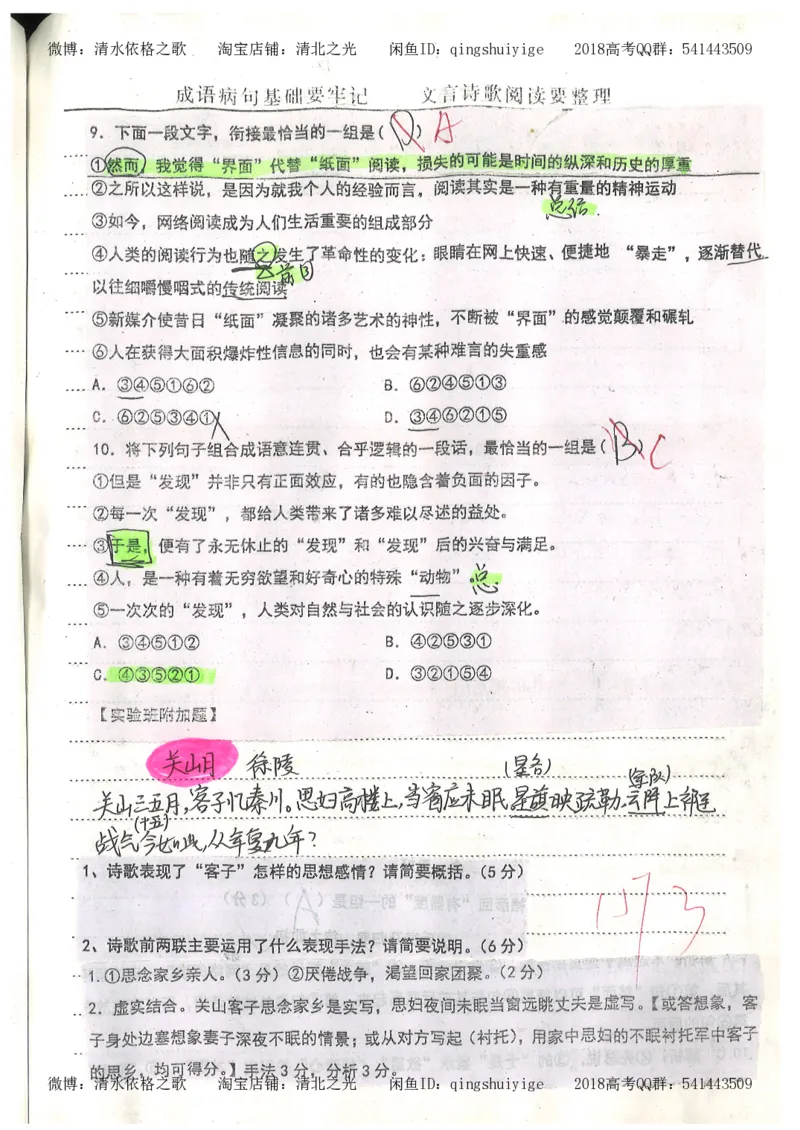 微博：清水依格之歌 淘宝店铺：清北之光 闲鱼ID：qingshuiyige 2018高考QQ群：541443509
成语病句基础要牢记 文言诗歌阅读要整理
9．下面一段文字，衔接最恰当的一组是（D）A
①然而，我觉得“界面”代替“纸面”阅读，损失的可能是时间的纵深和历史的厚重
②之所以这样说，是因为就我个人的经验而言，阅读其实是一种有重量的精神运动
总结
③如今，网络阅读成为人们生活重要的组成部分
④人类的阅读行为也随之发生了革命性的变化：眼睛在网上快速、便捷地“暴走”，逐渐替代
前③
以往细嚼慢咽式的传统阅读
⑤新媒介使昔日“纸面”凝聚的诸多艺术的神性，不断被“界面”的感觉颠覆和碾轧
⑥人在获得大面积爆炸性信息的同时，也会有某种难言的失重感
A．③④⑤①⑥② B．⑥②④⑤①③
C．⑥②⑤③④① D．③④⑥②①⑤
10．将下列句子组合成语意连贯、合乎逻辑的一段话，最恰当的一组是（B）C
①但是“发现”并非只有正面效应，有的也隐含着负面的因子。
②每一次“发现”，都给人类带来了诸多难以尽述的益处。
③于是，便有了永无休止的“发现”和“发现”后的兴奋与满足。
④人，是一种有着无穷欲望和好奇心的特殊“动物”。总
⑤一次次的“发现”，人类对自然与社会的认识随之逐步深化。
A．③④⑤①② B．④②⑤③①
C．④③⑤②① D．③②①⑤④
【实验班附加题】
关山月 徐陵 （星名）
（军队）
关山三五月，客子忆秦川。思妇高楼上，当窗应未眠。星旗映疏勒，云阵上祁连
（十五）
战气今如此，从军复几年？
1、诗歌表现了“客子”怎样的思想感情？请简要概括。（5分）
2、诗歌前两联主要运用了什么表现手法？请简要说明。（6分）
1.①思念家乡亲人。（3分）②厌倦战争，渴望回家团聚。（2分）
2．虚实结合。关山客子思念家乡是实写，思妇夜间未眠当窗远眺丈夫是虚写。【或答想象，客
子身处边塞想象妻子深夜不眠的情景；或从对方写起（衬托），用家中思妇的不眠衬托军中客子
的思乡，均可得分。】手法3分，分析3分。
微博：清水依格之歌 淘宝店铺：清北之光 闲鱼ID：qingshuiyige 2018高考QQ群：541443509